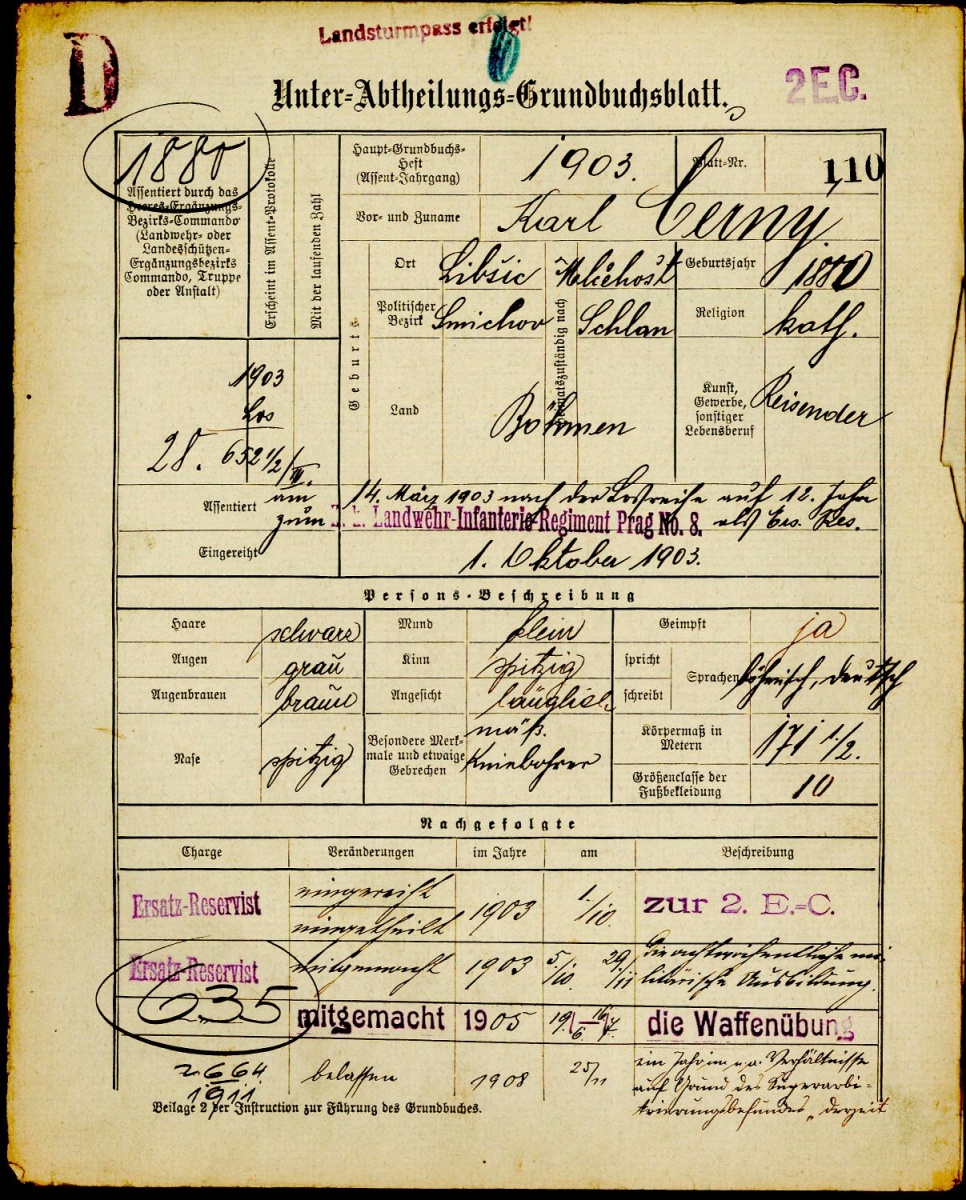 Landsturmpass erfolgt!
D
Unter-Abtheilungs-Grundbuchsblatt.
2 E.C.
1880
Assentiert durch das
Heeres-Ergänzungs-
Bezirks-Commando
(Landwehr- oder
Landesschützen-
Ergänzungsbezirks
Commando, Truppe
oder Anstalt)
Erscheint im Assent-Protokolle
Mit der laufenden Zahl
Haupt-Grundbuchs-
Heft
(Assent-Jahrgang)
1903.
Blatt-Nr.
110
Vor- und Zuname
Karl Černý.
Geburts-
Ort
Libšic
Heimatszuständig nach
Mlčehost
Geburtsjahr
1880
Politischer
Bezirk
Smichov
Schlan
Religion
kath.
Land
Böhmen
Kunst,
Gewerbe,
sonstiger
Lebensberuf
Reisender
1903
Los
28. 652 1/2/III.
Assentiert
am 14. März 1903 nach der Losreihe auf 12. Jahre
zum k. k. Landwehr-Infanterie-Regiment Prag No. 8. als Ers. Res.
Eingereiht
1. Oktober 1903.
Persons-Beschreibung
Haare
schwarz
Mund
klein
Geimpft
ja
Augen
grau
Kinn
spitzig
spricht
Sprachen
böhmisch, deutsch
Augenbrauen
braun
Angesicht
länglich
schreibt
Nase
spitzig
Besondere Merk-
male und etwaige
Gebrechen
mäß.
Kniebohrer
Körpermaß in
Metern
171 1/2.
Größenclasse der
Fußbekleidung
10
Nachgefolgte
Charge
Veränderungen
im Jahre
am
Beschreibung
Ersatz-Reservist
eingereiht
eingetheilt
1903
1./10.
zur 2. E.-C.
Ersatz-Reservist
mitgemacht
1903
5./10. 29./11
die achtwöchentliche mi-
litärische Ausbildung.
635
mitgemacht
1905
19./6.–16/7.
die Waffenübung
664
1911
belassen
1908
25/11
ein Jahr im n.a. Verhältnisse
auf Grund des Superarbi-
trierungsbefundes „derzeit
Beilage 2 der Instruction zur Führung des Grundbuches.